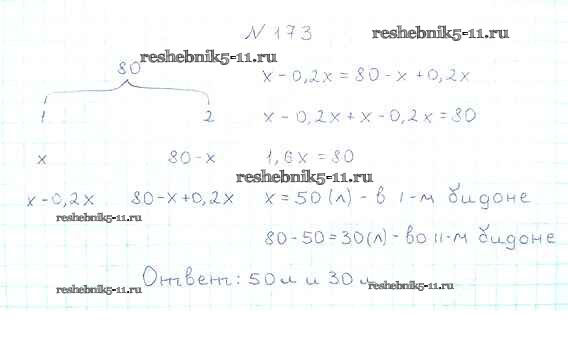 N 173
reshebnik5-11.ru
reshebnik5-11.ru
80
x - 0,2x = 80 - x + 0,2x
1 2
x - 0,2x + x - 0,2x = 80
x 80 - x
1,6x = 80
reshebnik5-11.ru
x - 0,2x 80 - x + 0,2x
x = 50 (л) - в I-м бидоне
reshebnik5-11.ru
80 - 50 = 30 (л) - во II-м бидоне
Ответ: 50 л и 30 л
reshebnik5-11.ru
reshebnik5-11.ru